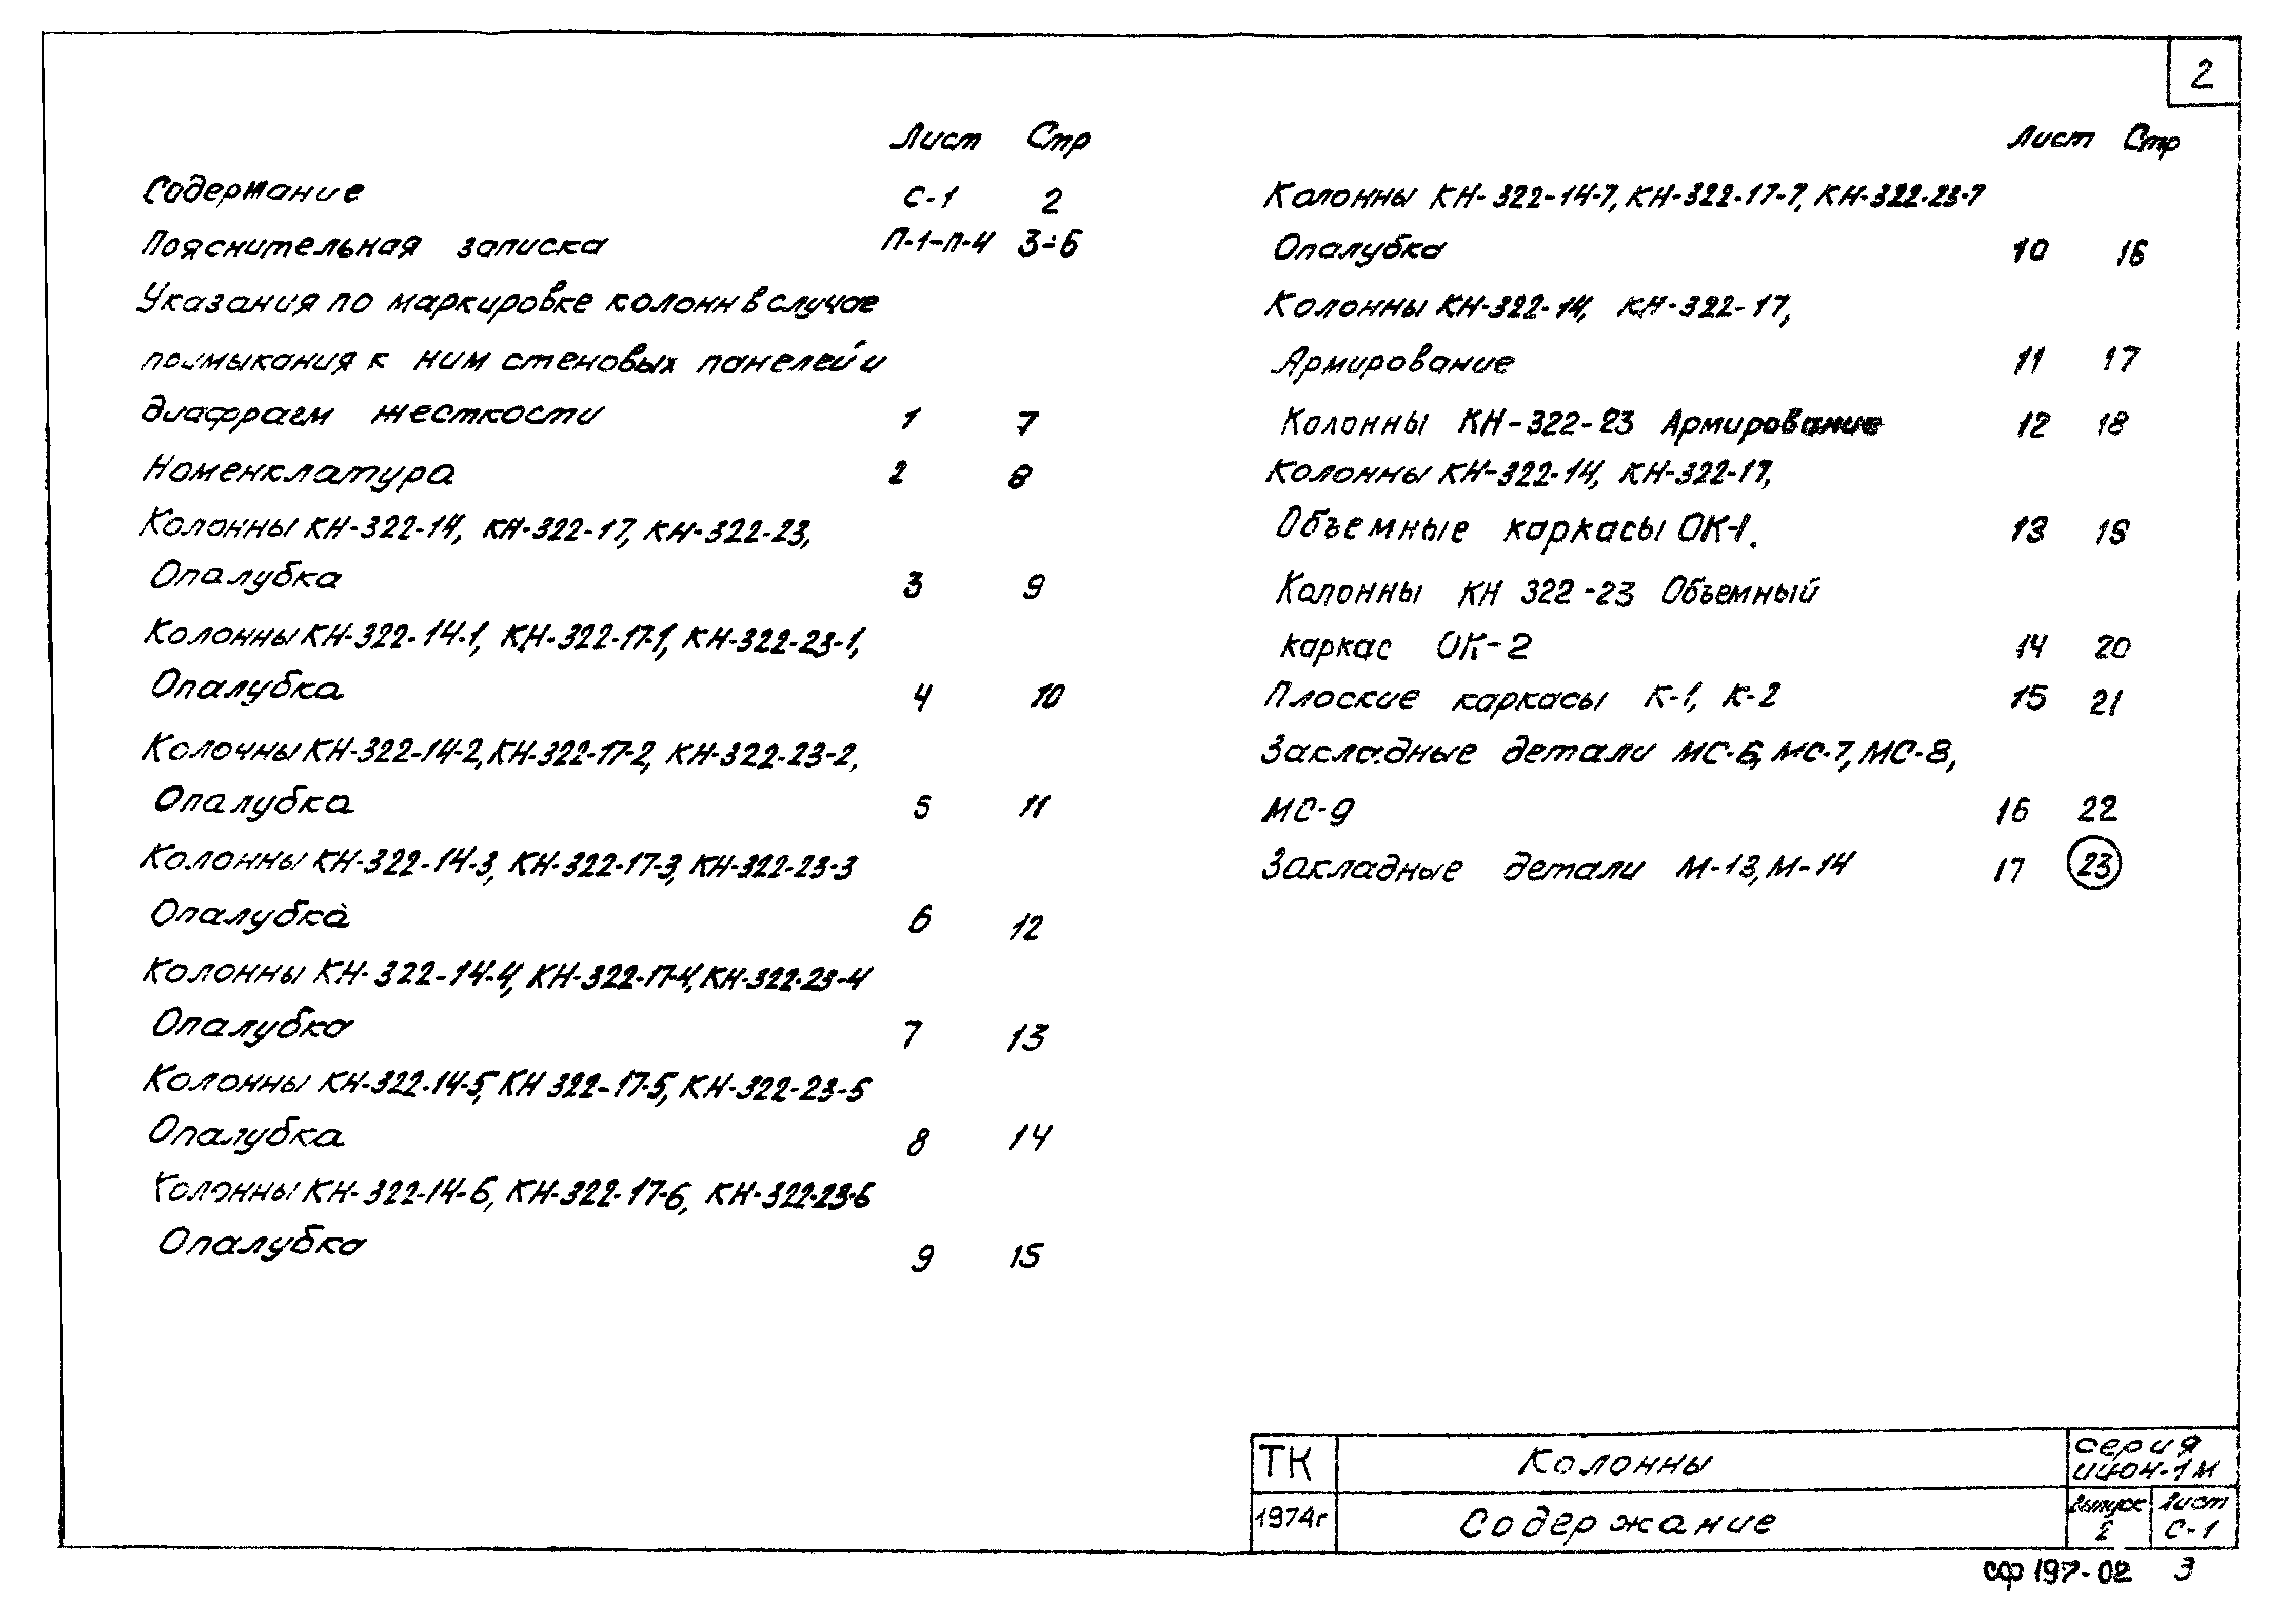 2
Лист Стр
Содержание С-1 2
Пояснительная записка П-1-П-4 3÷6
Указания по маркировке колонн в случае
примыкания к ним стеновых панелей и
диафрагм жесткости 1 7
Номенклатура 2 8
Колонны КН-322-14, КН-322-17, КН-322-23,
Опалубка 3 9
Колонны КН-322-14-1, КН-322-17-1, КН-322-23-1,
Опалубка 4 10
Колонны КН-322-14-2, КН-322-17-2, КН-322-23-2,
Опалубка 5 11
Колонны КН-322-14-3, КН-322-17-3, КН-322-23-3
Опалубка 6 12
Колонны КН-322-14-4, КН-322-17-4, КН-322-23-4
Опалубка 7 13
Колонны КН-322-14-5, КН 322-17-5, КН-322-23-5
Опалубка 8 14
Колонны КН-322-14-6, КН-322-17-6, КН-322-23-6
Опалубка 9 15
Лист Стр
Колонны КН-322-14-7, КН-322-17-7, КН-322-23-7
Опалубка 10 16
Колонны КН-322-14, КН-322-17,
Армирование 11 17
Колонны КН-322-23 Армирование 12 18
Колонны КН-322-14, КН-322-17,
Объемные каркасы ОК-1. 13 19
Колонны КН 322-23 Объемный
каркас ОК-2 14 20
Плоские каркасы К-1, К-2 15 21
Закладные детали МС-6, МС-7, МС-8,
МС-9 16 22
Закладные детали М-13, М-14 17 23
ТК Колонны серия
ИИ04-1М
1974г Содержание Выпуск 2 Лист С-1
сф 197-02 3